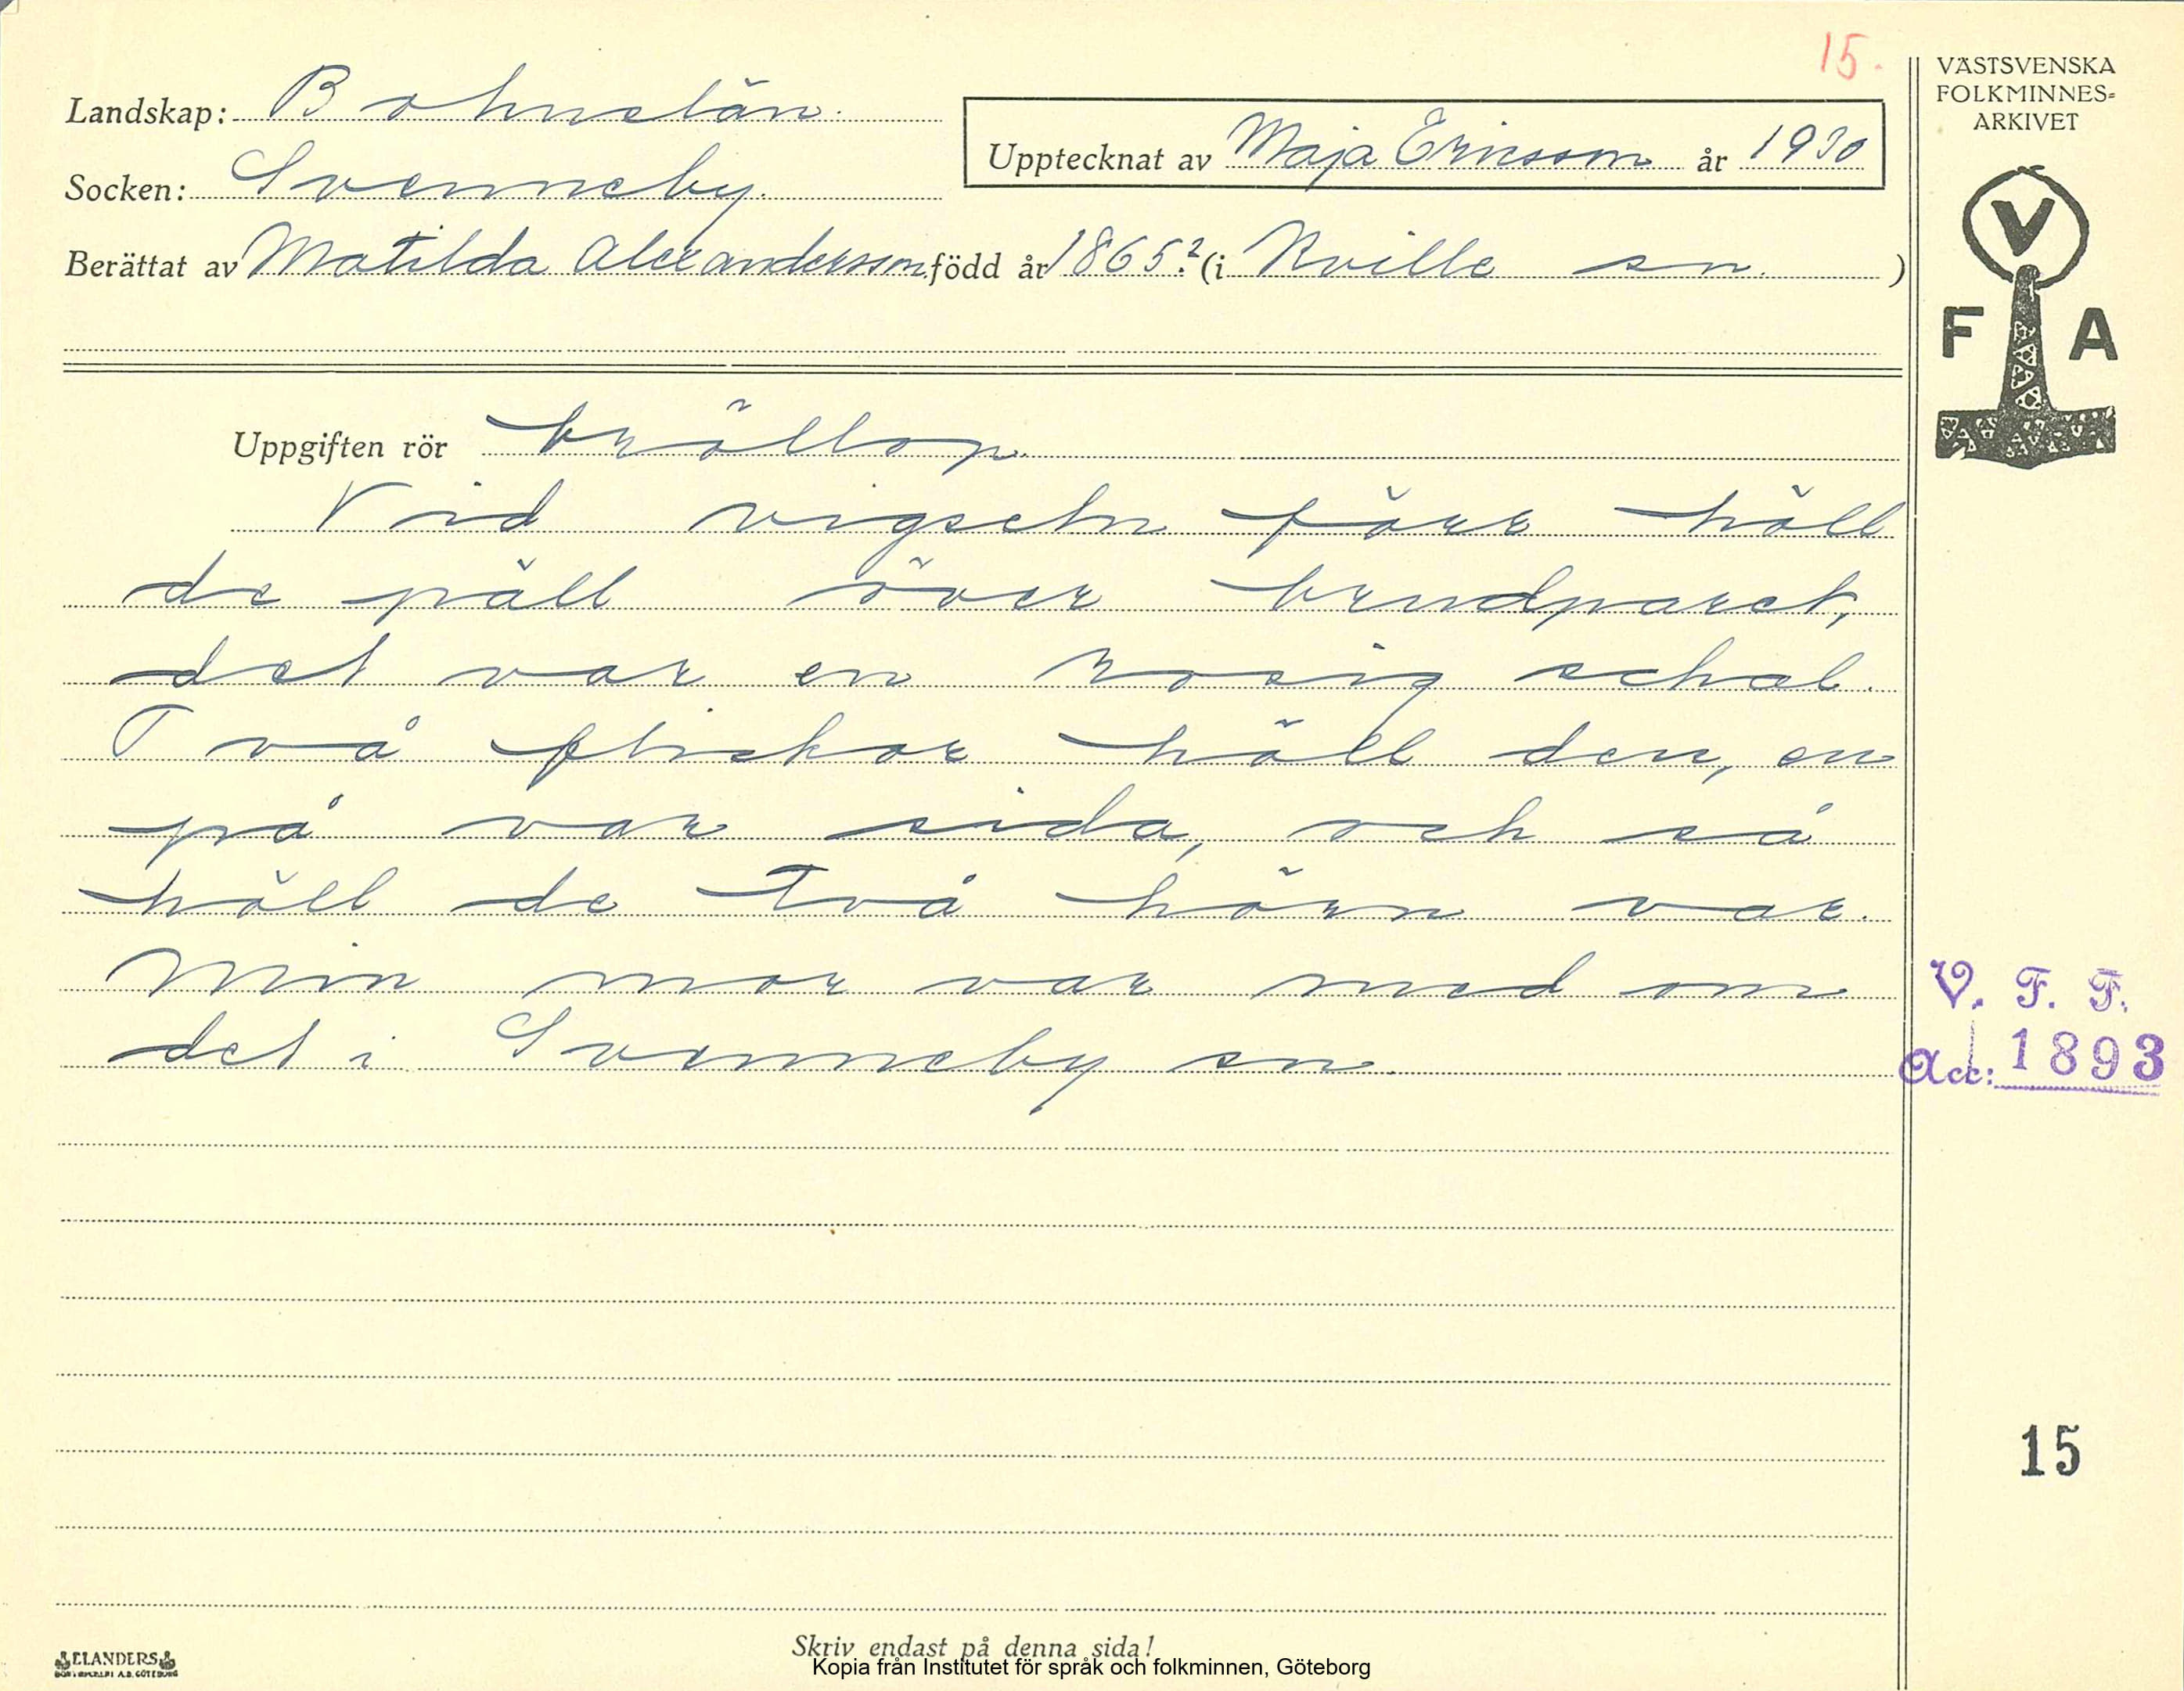 15.
VÄSTSVENSKA
FOLKMINNES=
ARKIVET
Landskap: Bohuslän.
Upptecknat av Maja Ericsson år 1930
Socken: Svenneby.
Berättat av Matilda Alexandersson född år 1865.? (i Kville sn. )
V
F A
Uppgiften rör bröllop.
Vid vigseln förr höll
de päll över brudparet,
det var en rosig schal.
Två flickor höll den, en
på var sida, och så
höll de två hörn var.
Min mor var med om
det i Svenneby sn.
V. F. F.
Acc: 1893
15
Skriv endast på denna sida!
ELANDERS
BOKTRYCKERI A.B. GÖTEBORG
Kopia från Institutet för språk och folkminnen, Göteborg